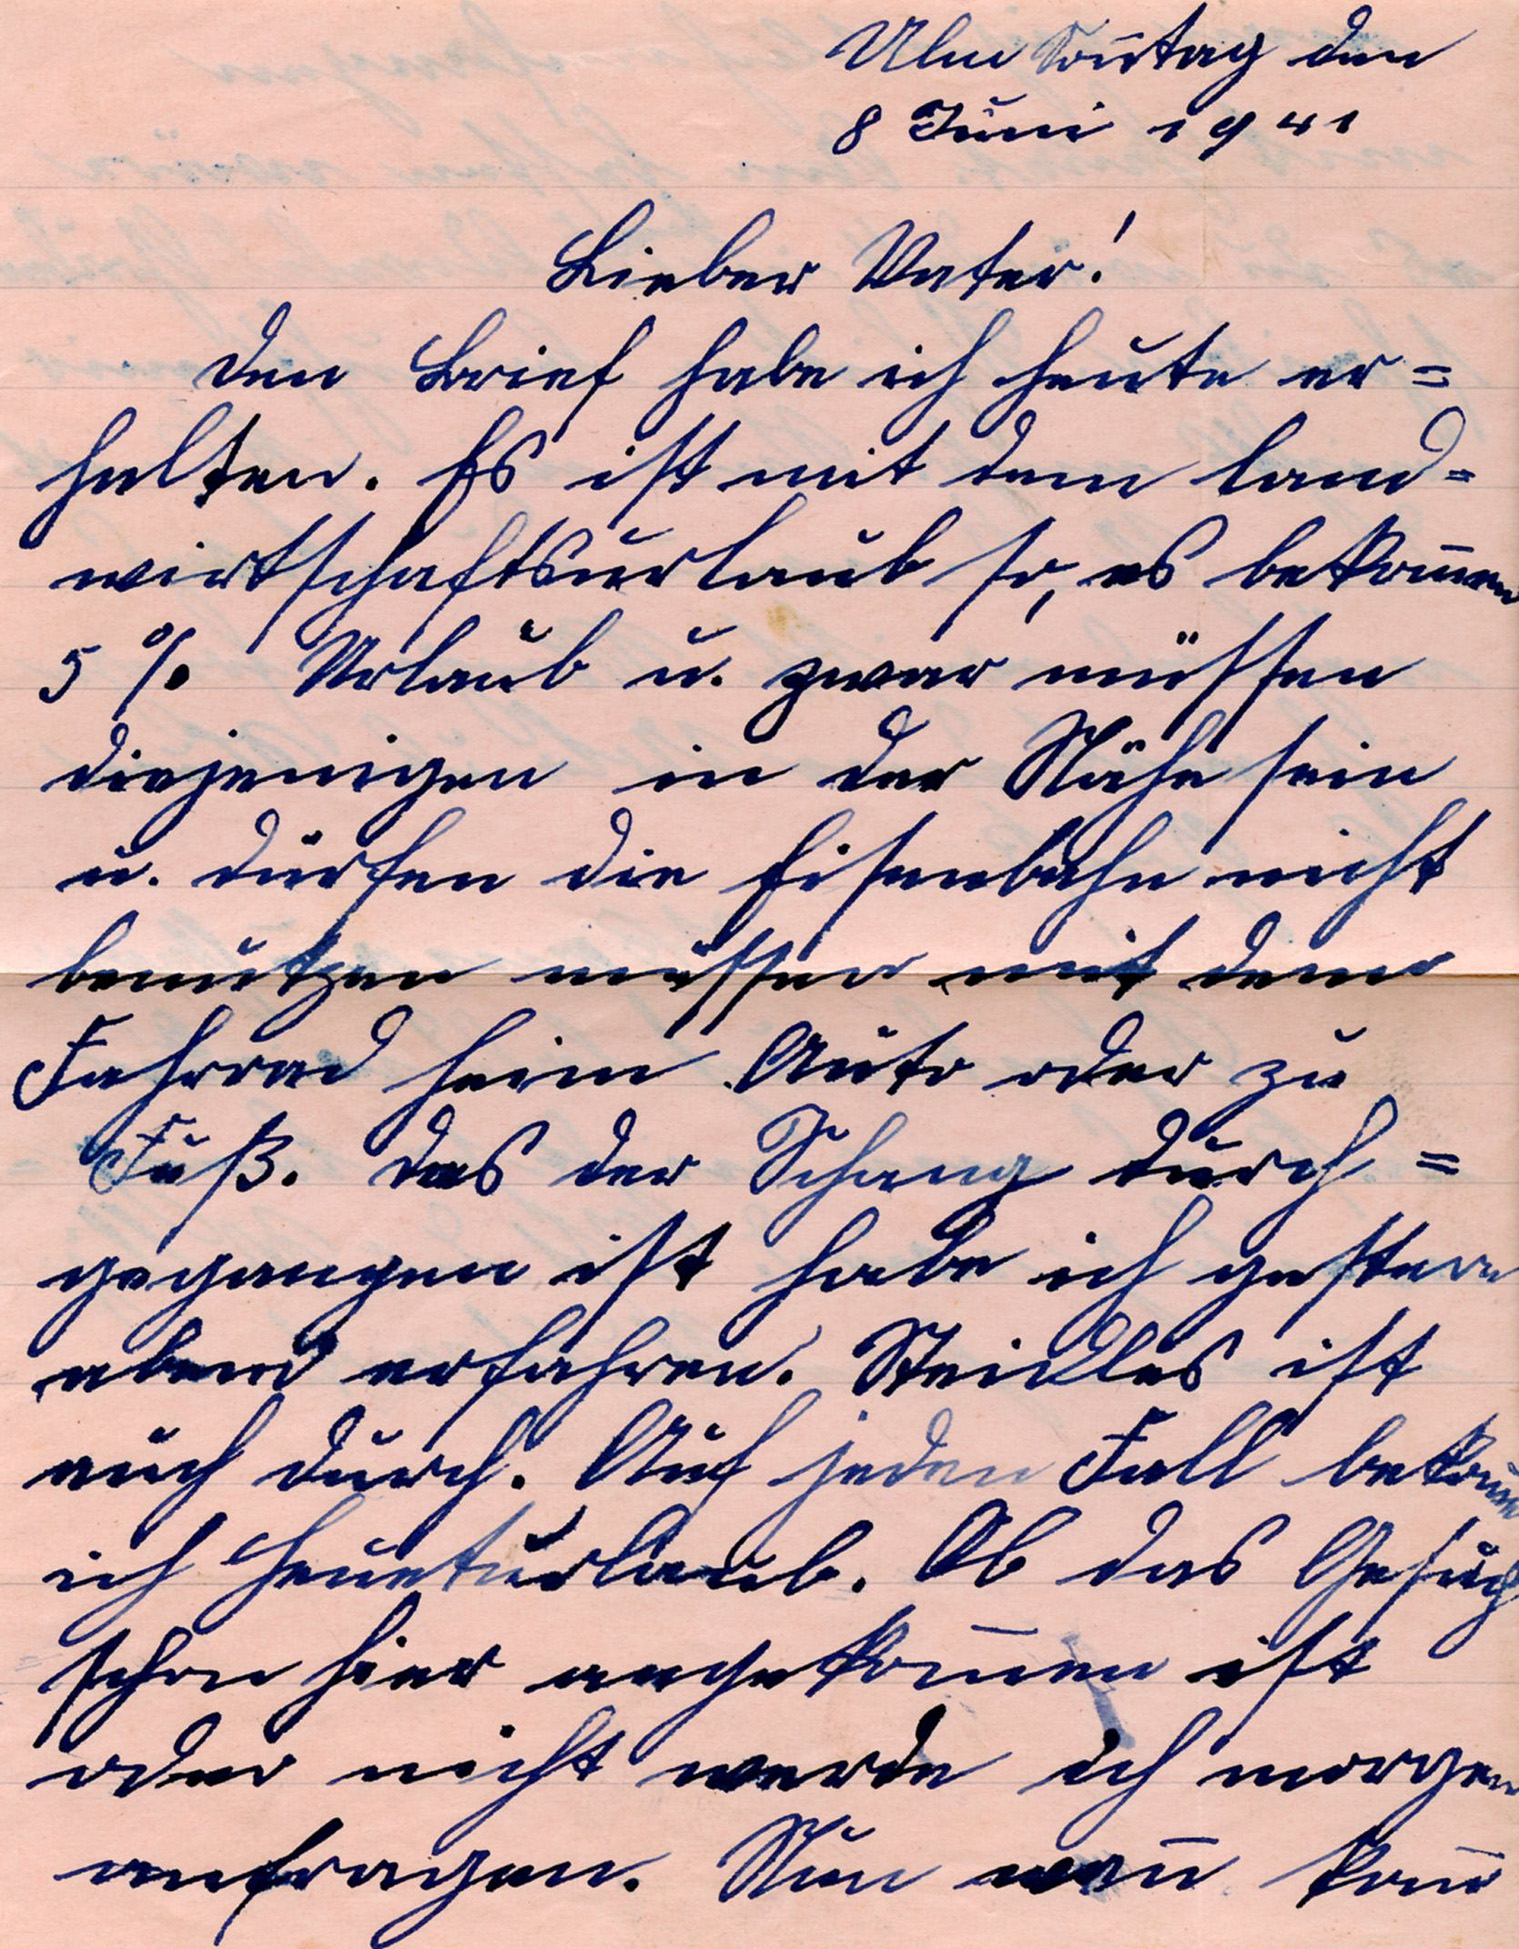 Ulm Soñtag den
8 Juni 1941
Lieber Vater!
Den Brief habe ich heute er=
halten. Es ist mit dem Land=
wirtschaftsurlaub so, es bekom̄en
5 % Urlaub u. zwar müssen
diejenigen in der Nähe sein
u. dürfen die Eisenbahn nicht
benutzen müssen mit dem
Fahrrad heim Auto oder zu
Fuß. Das der Schang durch=
gegangen ist habe ich gestern
abend erfahren. Steidles ist
auch durch. Auf jeden Fall bekom̄e
ich Heueturlaub. Ob das Gesuch
schon hier angekom̄en ist
oder nicht werde ich morgen
anfragen. Nun wañ kom̄